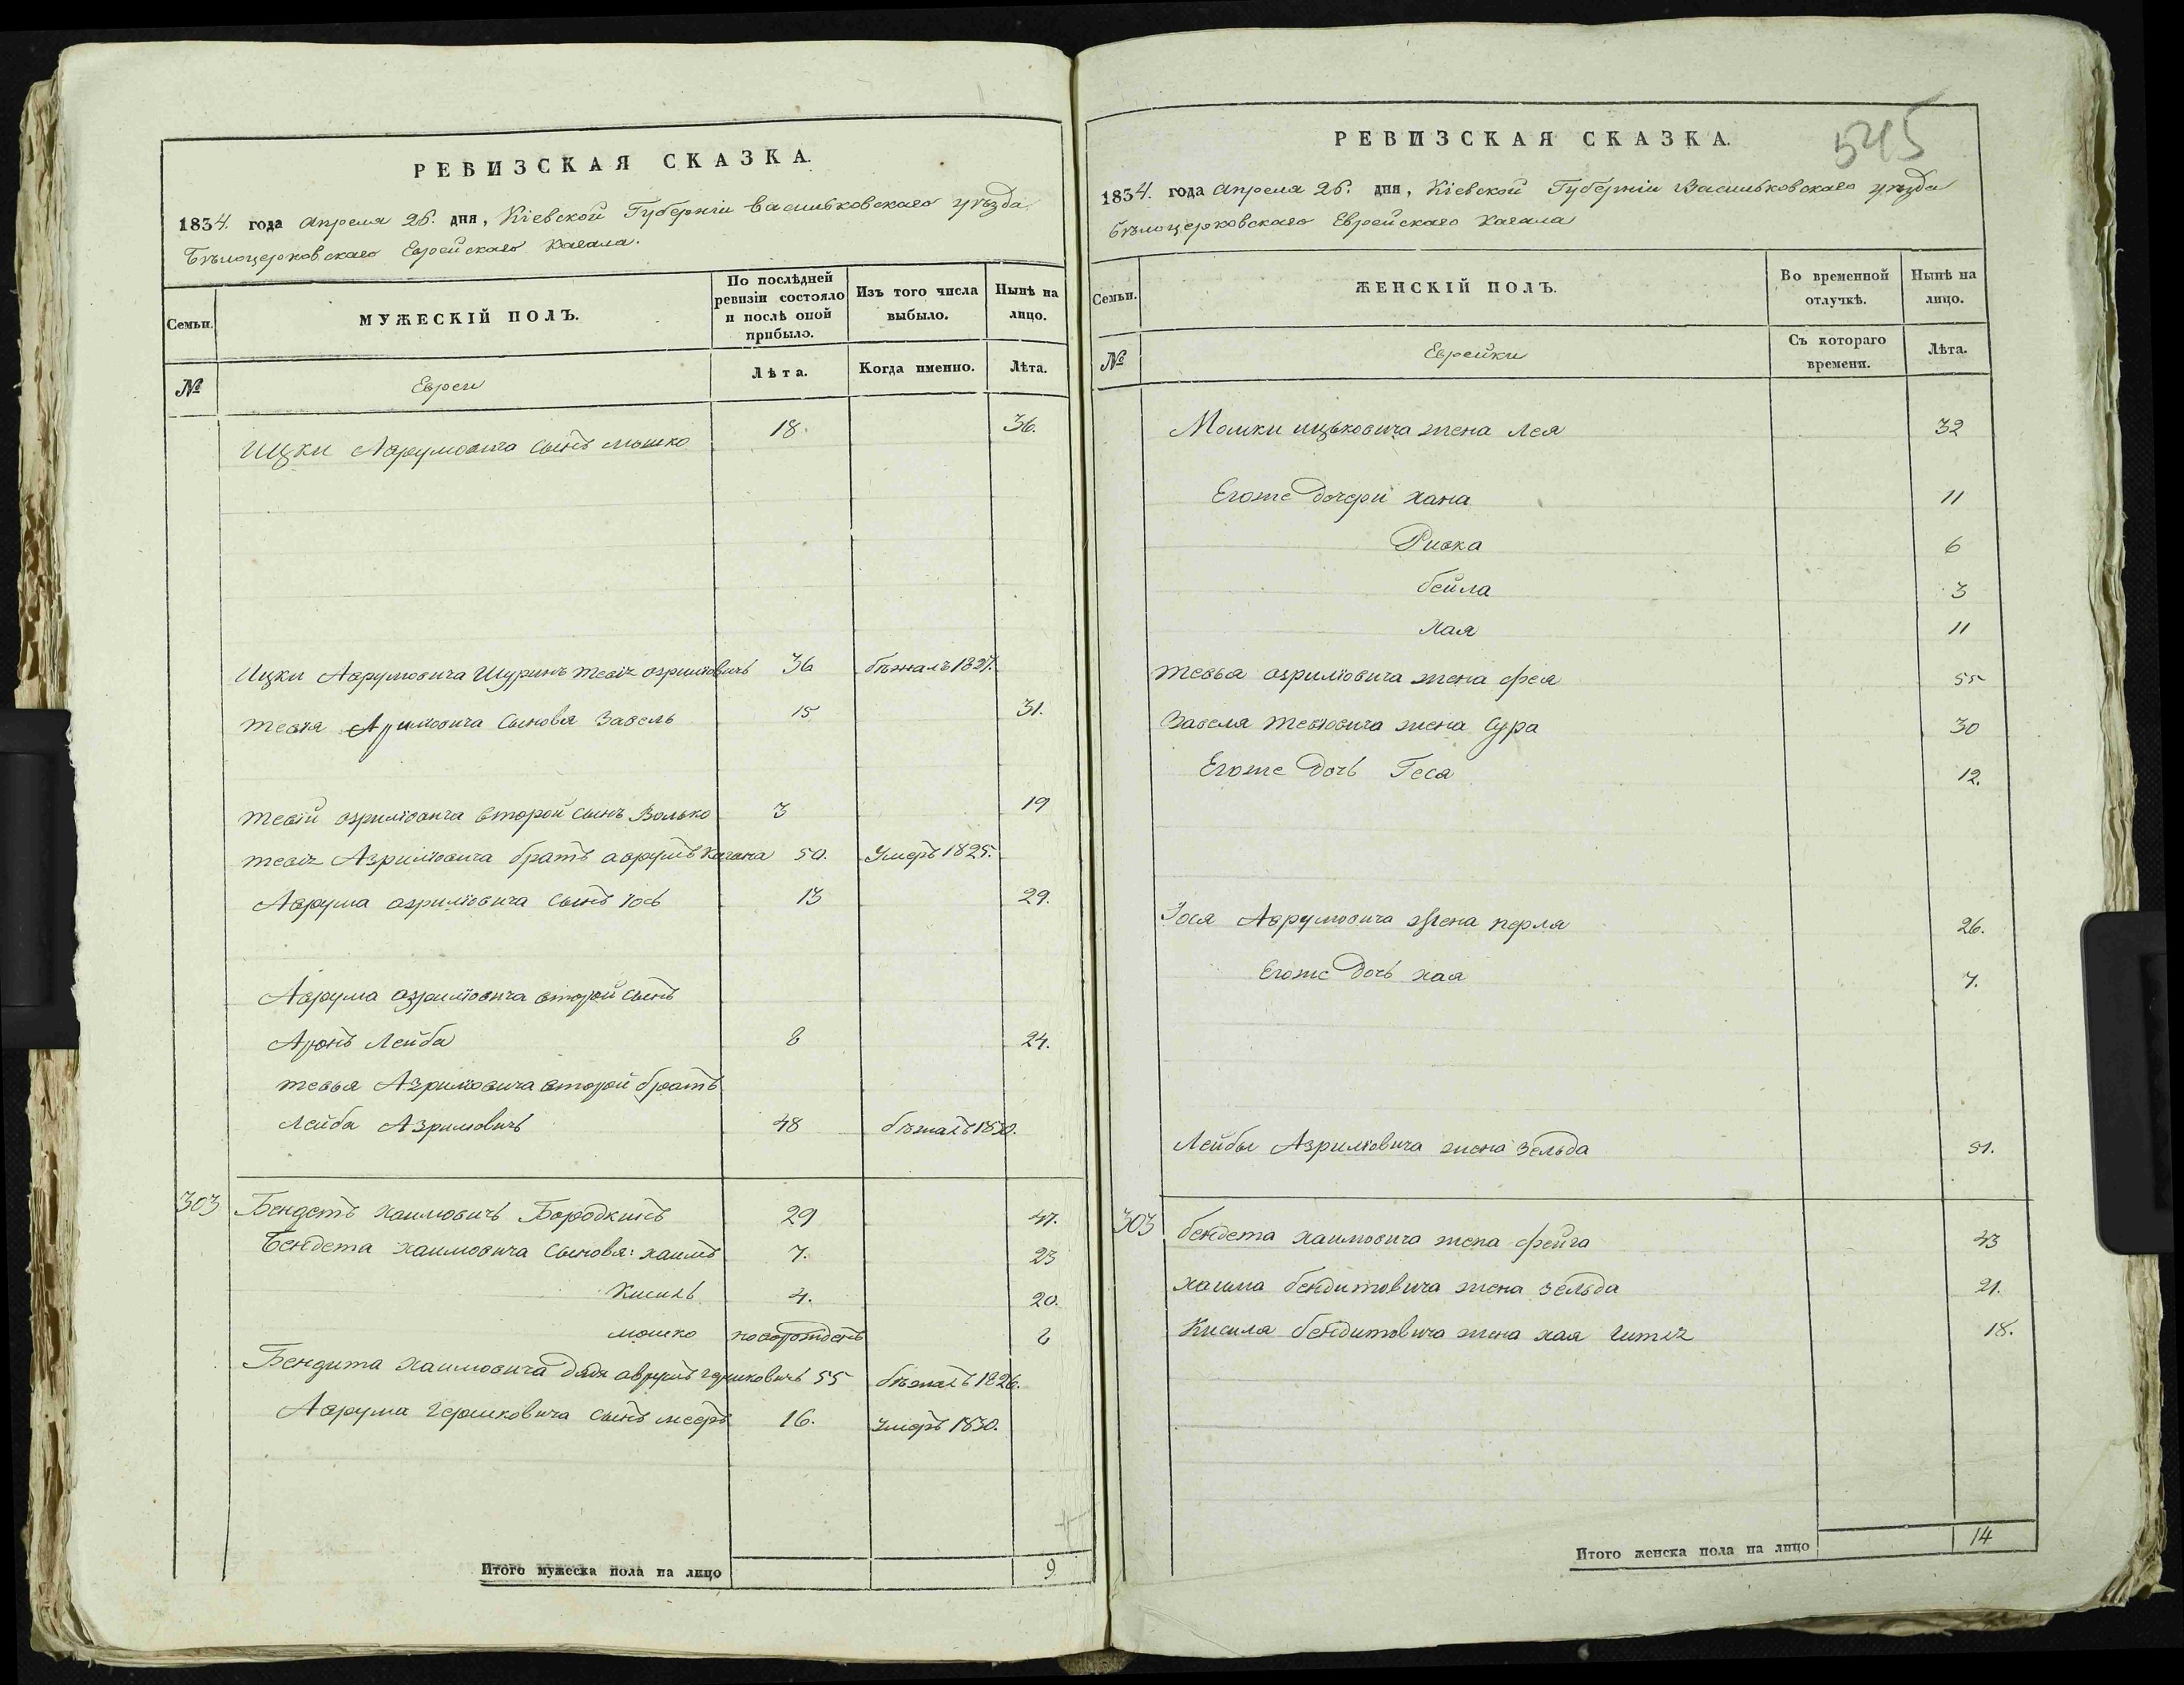 РЕВИЗСКАЯ СКАЗКА.
1834. года Апреля 25. дня, Кіевской Губерніи Васильковскаго уѣзда
Бѣлоцерковскаго Еврейскаго Кагала.
Семьи.
МУЖЕСКІЙ ПОЛЪ.
По послѣдней ревизіи состояло и послѣ оной прибыло.
Изъ того числа выбыло.
Нынѣ на лицо.
№
Евреи
Лѣта.
Когда именно.
Лѣта.
Ицки Аврумовича сынъ мошко 18. 36.
Ицки Аврумовича Шуринъ тевіѣ азриліовичъ 36 бѣжалъ 1827.
тевія Азриліовича сыновя Завель 15 31.
тевій азриліовича второй сынъ Волько 3 19
тевіѣ Азриліовича братъ аврумъ 50. Умеръ 1825.
Аврума азриліовича сынъ іось 13 29.
Аврума азриліовича второй сынъ
Аронъ Лейба 8 24.
тевья Азриліовича второй братъ
Лейба Азриловичъ 48 бѣжалъ 1830.
303 Бендетъ хаимовичъ Бородкинъ 29 47.
Бендета хаимовича сыновя: хаимъ 7. 23
Кисиль 4. 20.
мошко новорожденъ 2
Бендита хаимовича дядя аврумъ гершковичъ 55 бѣжалъ 1826.
Аврума гершковича сынъ мееръ 16. умеръ 1830.
Итого мужеска пола на лицо 9
545
РЕВИЗСКАЯ СКАЗКА.
1834. года Апреля 25. дня, Кіевской Губерніи Васильковскаго уѣзда
бѣлоцерковскаго Еврейскаго Кагала
Семьи.
ЖЕНСКІЙ ПОЛЪ.
Во временной отлучкѣ.
Нынѣ на лицо.
№
Еврейки
Съ котораго времени.
Лѣта.
Мошки ицьковича жена лея 32
Егоже дочери хана 11
Ривка 6
бейла 3
хая 11
тевья азриліовича жена фея 55
Завеля тевіовича жена сура 30
Егоже дочь Геся 12.
Іося Аврумовича жена перля 26.
Егоже дочь хая 7.
Лейбы Азриліовича жена зельда 51.
303 бендета хаимовича жена фейга 43
хаима бендитовича жена зельда 21.
Кисиля бендитовича жена хая 18.
Итого женска пола на лицо 14